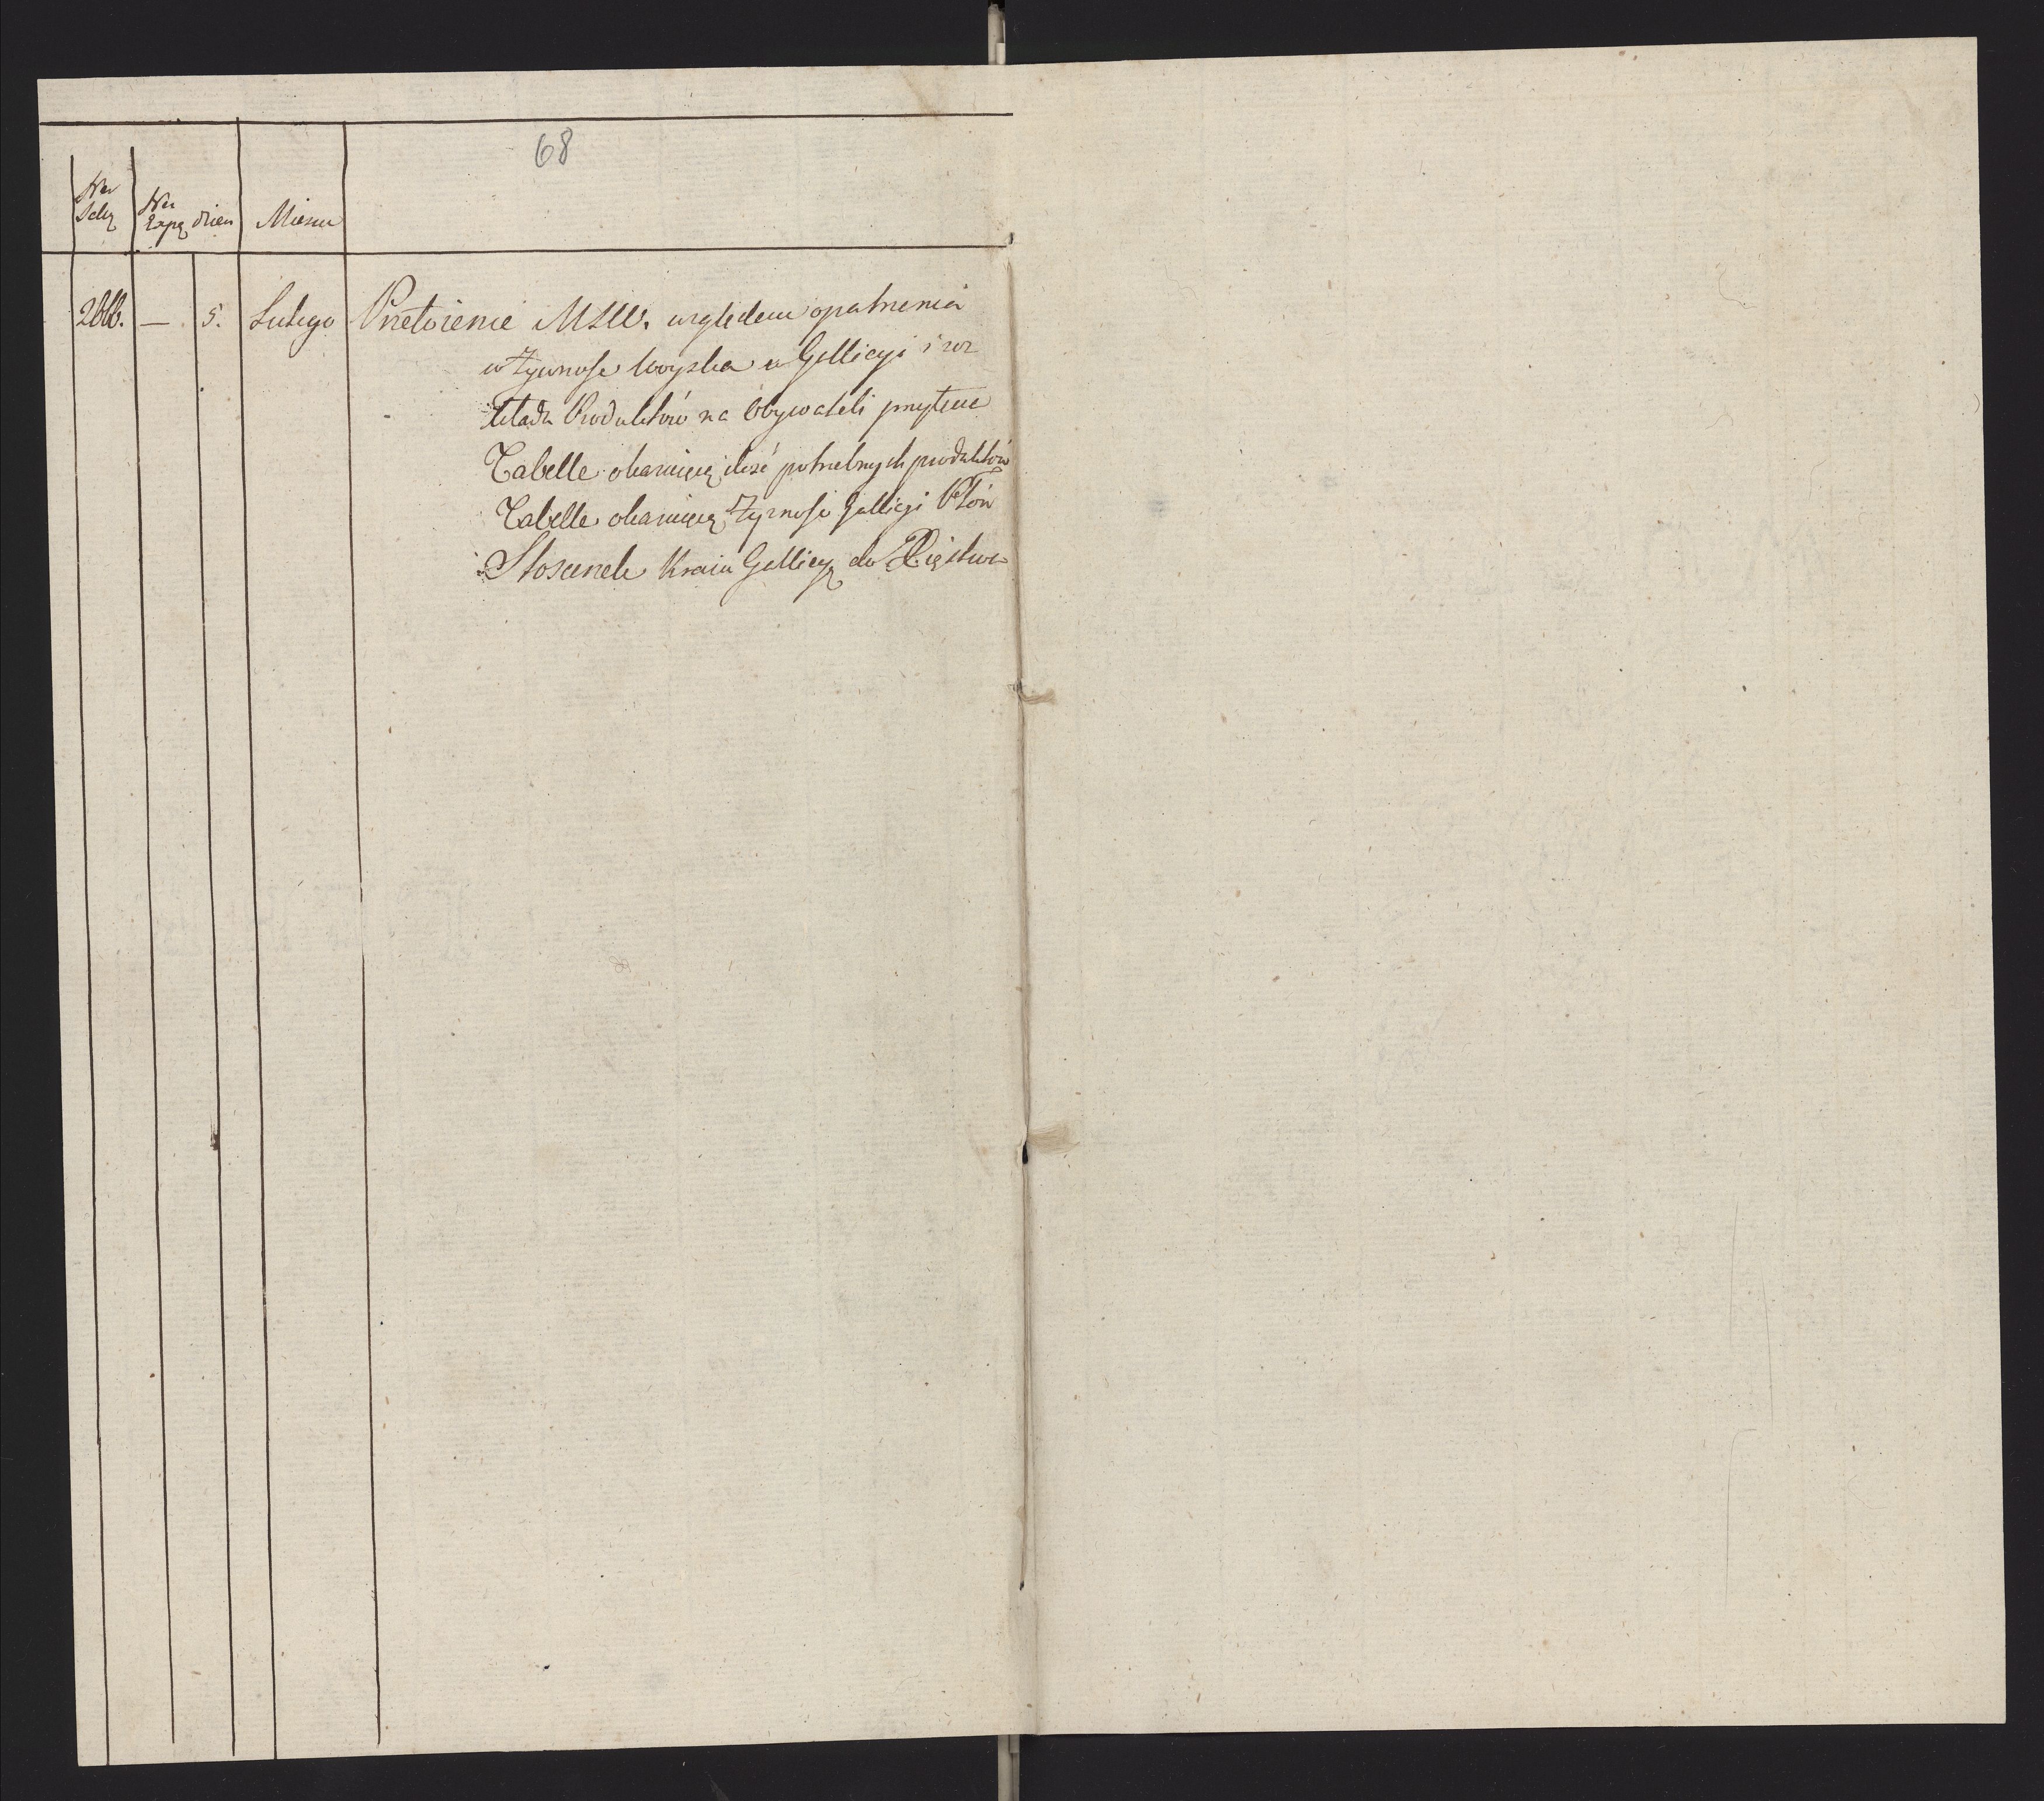 68
Nro Nro
Sekr Expe dzien Miesia
2866. — 5. Lutego Przełożenie MSW. względem opatrzenia
w Żywnosc Woyska w Gallicyi i roz
kładu Produktów na Obywateli przytem
Tabelle okazuiącą ilość potrzebnych produktów
Tabelle okazuiącą Żyznosc Gallicyi
Stosunek Kraiu Gallicyi do Xięstwa